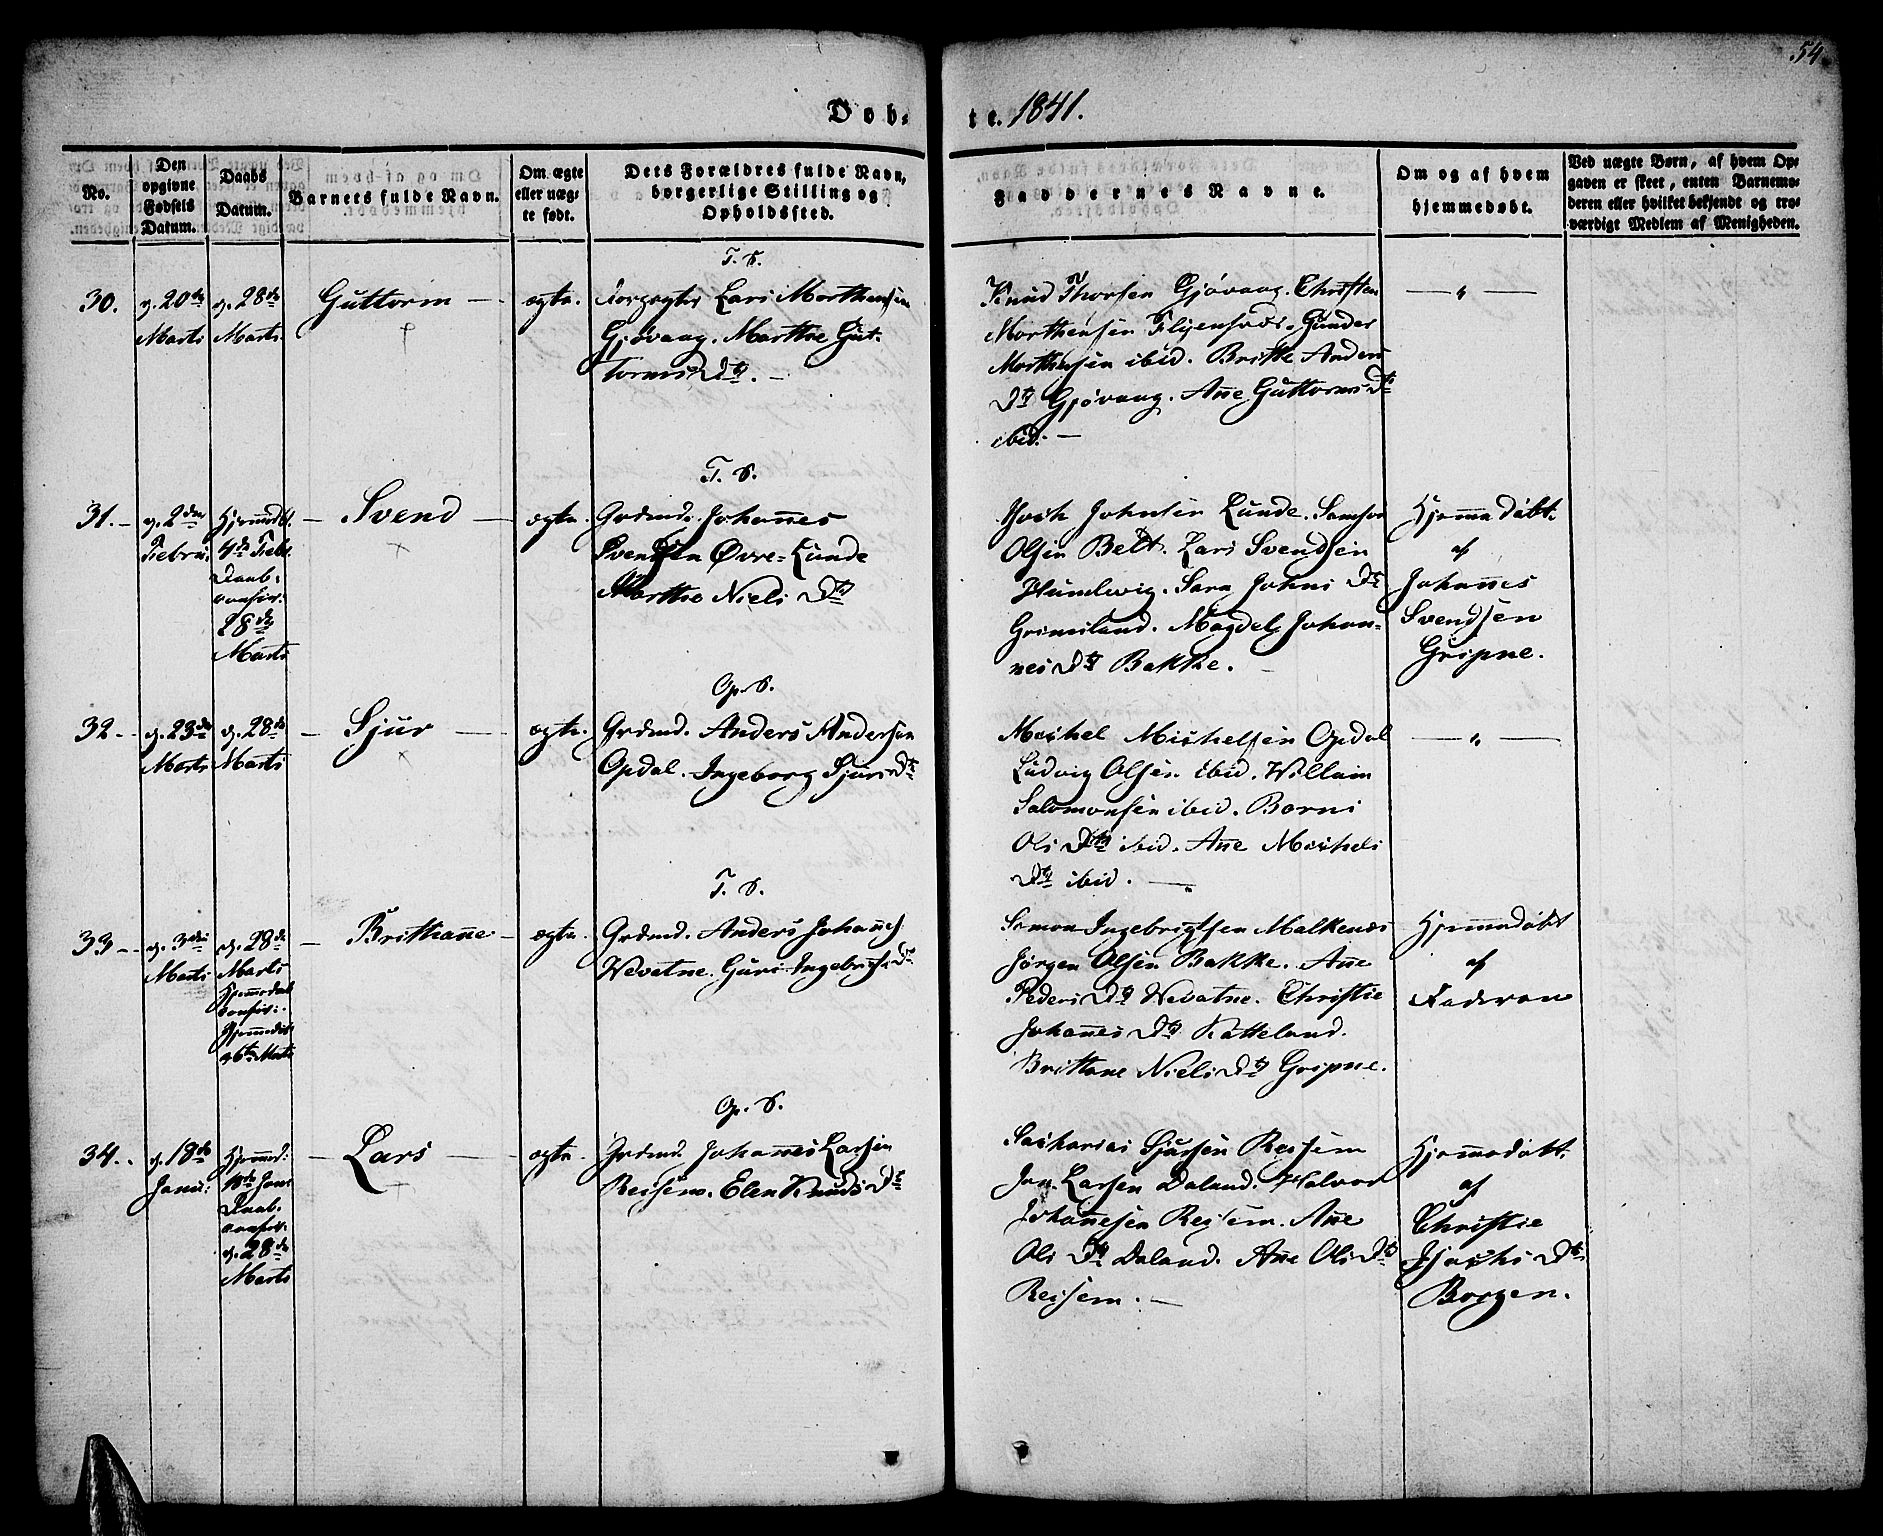 54.
Døb-
te. 1841.
No.
Den opgivne Fødsels Datum.
Daabs Datum.
Barnets fulde Navn.
Om ægte eller uægte født.
Dets Forældres fulde Navn, borgerlige Stilling og Opholdssted.
Faddernes Navne.
Om og af hvem hjemmedøbt.
Ved uægte Børn, af hvem Opgaden er skeet, enten Barnemoderen eller hvilket bekjendt og troværdigt Medlem af Menigheden.
T. S.
30.
d. 20de
Marts
d. 28de
Marts.
Guttorm
ægte.
Lars Morthensen
Gjøvaag. Marthe Gut-
torms Dtr. —
Knud Thorsen Gjøvaag. Christen
Morthensen . Gunder
Morthensen ibid. Britte Anders
Dtr Gjøvaag. Ane Guttorms Dtr
ibid. —
— " —
T. S.
31. -
d. 2den
Febru:
Hjemmedbt.
4de Febr.
Daab-
confir:
28de
Marts
Svend
ægte.
Grdmd. Johannes
Svendsen Øvre-Lunde
Marthe Niels Dtr
Johnsen Lunde. Samson
Olsen Belt. Lars Svendsen
Hundevig. Sara Johns Dtr
Grimsland. Magdel. Johan-
nes Dtr Bakke. —
Hjemmedøbt.
af
Johannes
Svendsen
Gripne.
Op. S.
32. -
d. 23de
Marts
d. 28de
Marts
Sjur
ægte.
Grdmd. Anders Andersen
Opdal. Ingeborg Sjurs Dtr
Michel Michelsen Opdal
Ludvig Olsen ibid. Willam
Salomonsen ibid. Børni
Ols Dtr ibid. Ane Michels
Dtr ibid. —
— " —
T. S.
33 -
d. 3die
Marts
d. 28de
Marts
Hjemmedaab
confir:
Hjemmedøbt
d 6te Marts
Britthane
ægte.
Grdmd. Anders Johannes.
Wevatne. Guri Ingebrigts Dtr
Samon Ingebrigtsen Malkenæs
Jørgen Olsen Bakke. Ane
Peders Dtr Wevatne. Christie
Johannes Dtr Katteland.
Brittane Niels Dtr Gripne.
Hjemmedøbt
af
Faderen
Op. S.
34. .
d. 18de
Janu:
Hjemmed:
18de Janu
Daab-
confir.
d. 28de
Marts
Lars
ægte.
Grdmd. Johannes Larsen
Reisem. Elen Knuds Dtr
Sacharias Sjursen Reisem
Jon. Larsen Daland. Halvor
Johannesen Reisem. Ane
Ols Dtr Daland. Ane Ols Dtr
Reisem. —
Hjemmedøbt.
af
Christie
Dtr
Borgen.